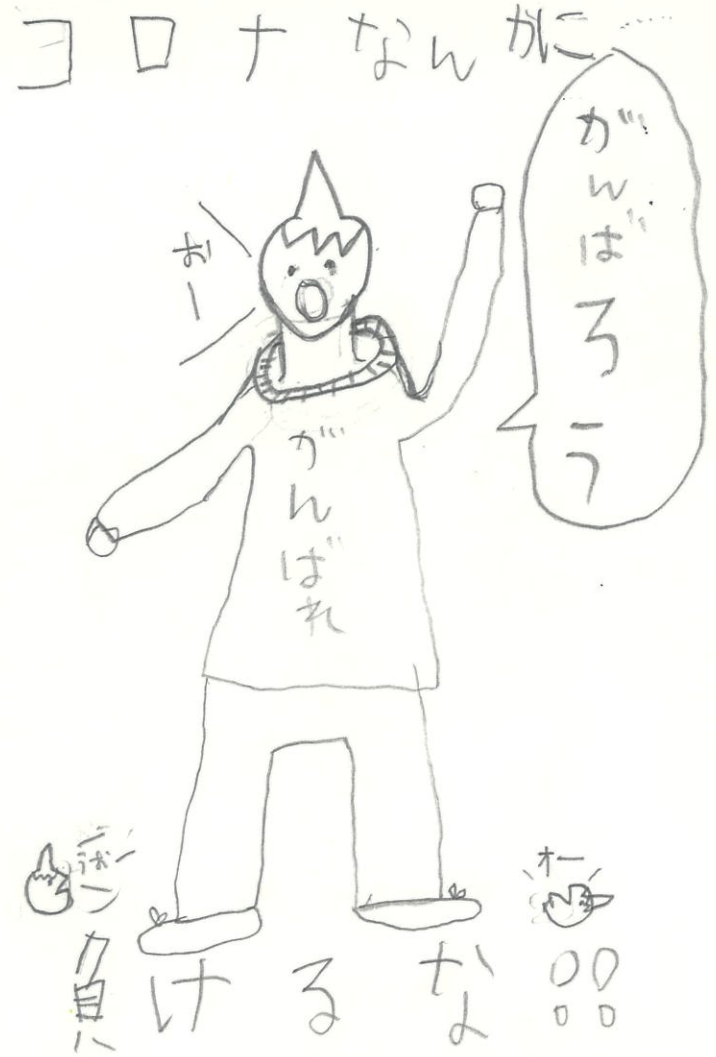 コロナなんかに……
がんばろう
おー
がんばれ
うおー
オー
負けるな!!